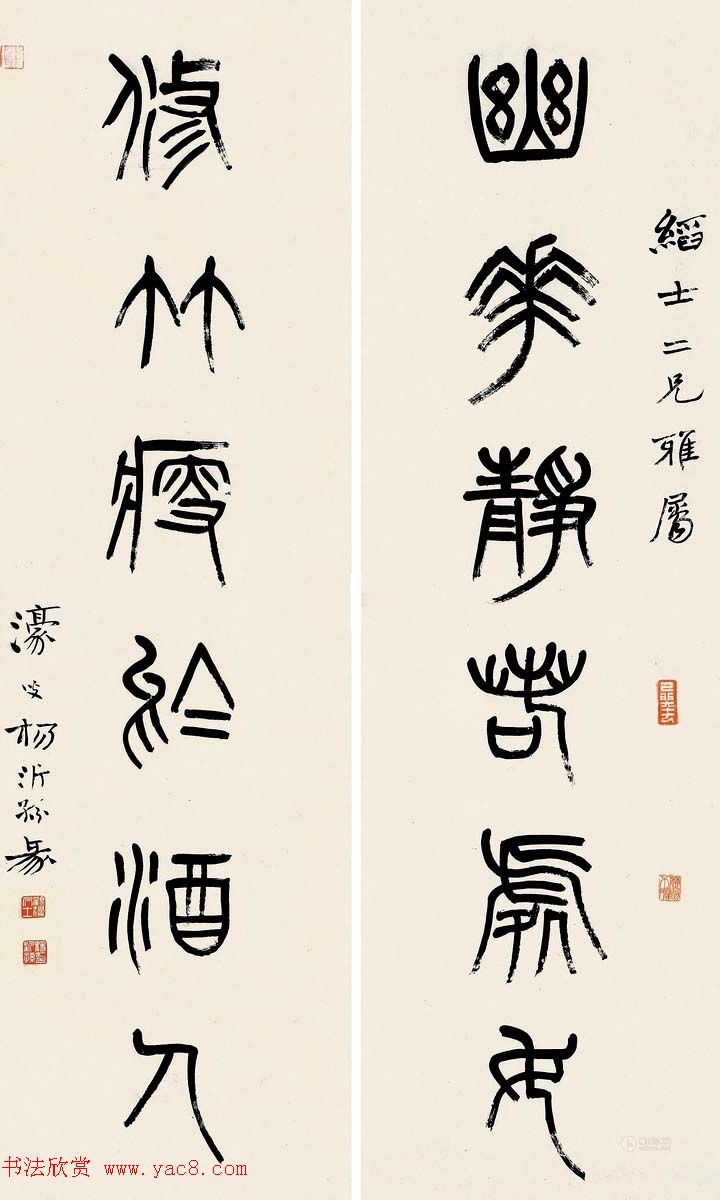 縚士二兄雅屬
幽華靜若處女
修竹瘦於酒人
濠叟楊沂孫篆
书法欣赏 www.yac8.com